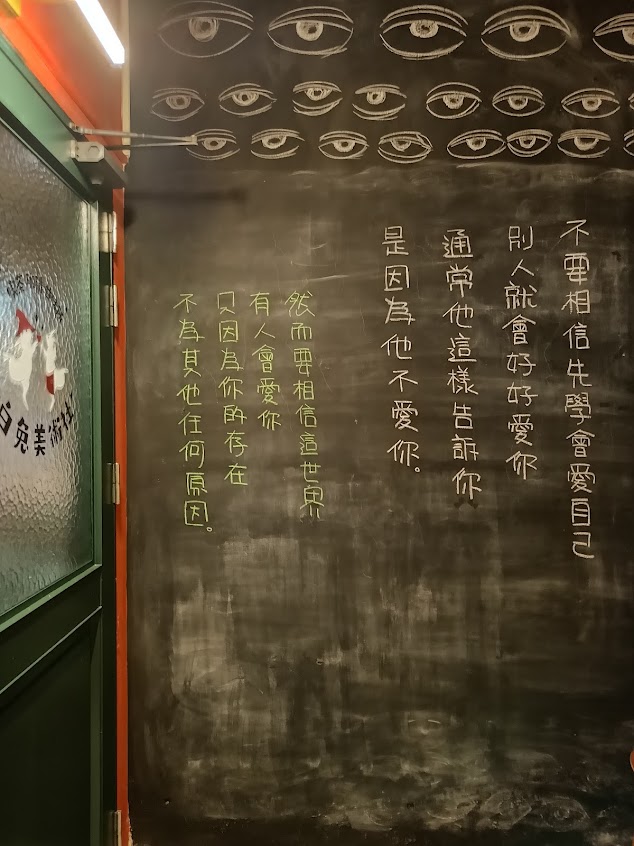 不要相信先學會愛自己
別人就會好好愛你
通常他這樣告訴你
是因為他不愛你。
然而要相信這世界
有人會愛你
只因為你的存在
不為其他任何原因。
白兔美術社